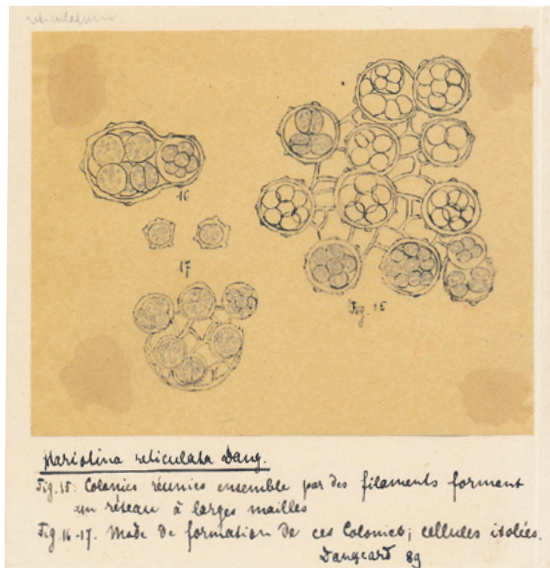 reticulatum
16
17
Fig. 15
Mariolina reticulata Dang.
Fig. 15: Colonies réunies ensemble par des filaments formant
un réseau à larges mailles
Fig. 16-17. Mode de formation de ces Colonies; cellules isolées.
Dangeard 89